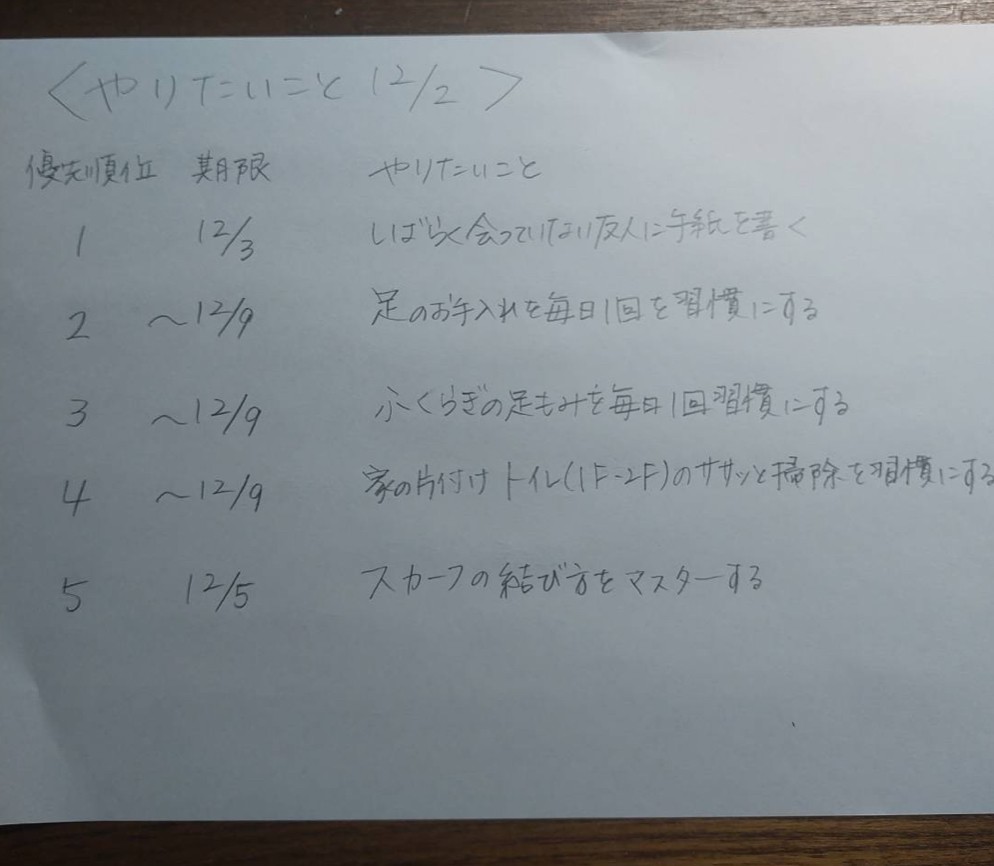 <やりたいこと 12/2>
優先順位 期限 やりたいこと
1 12/3 しばらく会っていない友人に手紙を書く
2 ~12/9 足のお手入れを毎日1回を習慣にする
3 ~12/9 ふくらぎの足もみを毎日1回習慣にする
4 ~12/9 家の片付け トイレ(1F-2F)のササッと掃除を習慣にする
5 12/5 スカーフの結び方をマスターする